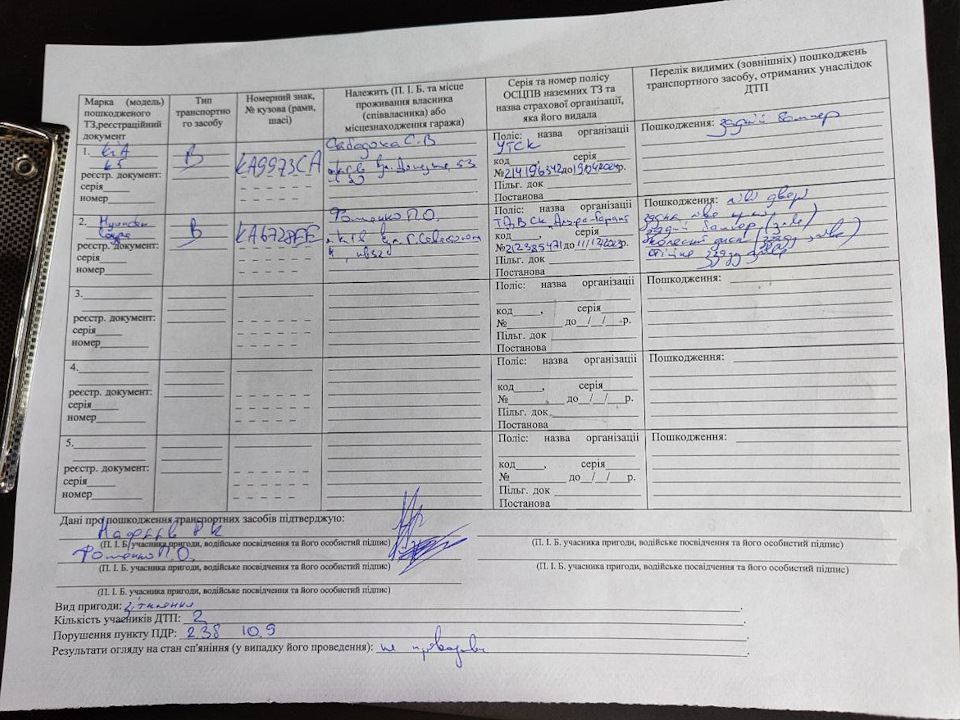 Марка (модель) пошкодженого ТЗ,реєстраційний документ
Тип транспортно го засобу
Номерний знак, № кузова (рами, шасі)
Належить (П. І. Б. та місце проживання власника (співвласника) або місцезнаходження гаража)
Серія та номер полісу ОСЦПВ наземних ТЗ та назва страхової організації, яка його видала
Перелік видимих (зовнішніх) пошкоджень транспортного засобу, отриманих унаслідок ДТП
1. KIA
K5
реєстр. документ:
серія
номер
B
KA9973CA
С.В
53
Поліс: назва організації
УТСК
код серія
№214196342 до
Пільг. док
Постанова
Пошкодження: задній бампер
2. Hyundai
реєстр. документ:
серія
номер
B
Фоменко П.О.
м. Київ вул.
Поліс: назва організації
ТДВ Ск Альфа-Гарант
код серія
№212385471 до 11/12/2023р.
Пільг. док
Постанова
Пошкодження: ліві двері
заднє ліве крило
задній бампер (зліва)
3.
реєстр. документ:
серія
номер
Поліс: назва організації
код , серія
№ до / / р.
Пільг. док
Постанова
Пошкодження:
4.
реєстр. документ:
серія
номер
Поліс: назва організації
код , серія
№ до / / р.
Пільг. док
Постанова
Пошкодження:
5.
реєстр. документ:
серія
номер
Поліс: назва організації
код , серія
№ до / / р.
Пільг. док
Постанова
Пошкодження:
Дані про пошкодження транспортних засобів підтверджую:
(П. І. Б. учасника пригоди, водійське посвідчення та його особистий підпис)
(П. І. Б. учасника пригоди, водійське посвідчення та його особистий підпис)
Фоменко П.О.
(П. І. Б. учасника пригоди, водійське посвідчення та його особистий підпис)
(П. І. Б. учасника пригоди, водійське посвідчення та його особистий підпис)
(П. І. Б. учасника пригоди, водійське посвідчення та його особистий підпис)
Вид пригоди: зіткнення
Кількість учасників ДТП: 2
Порушення пункту ПДР: 2.3б 10.9
Результати огляду на стан сп'яніння (у випадку його проведення): не проводився